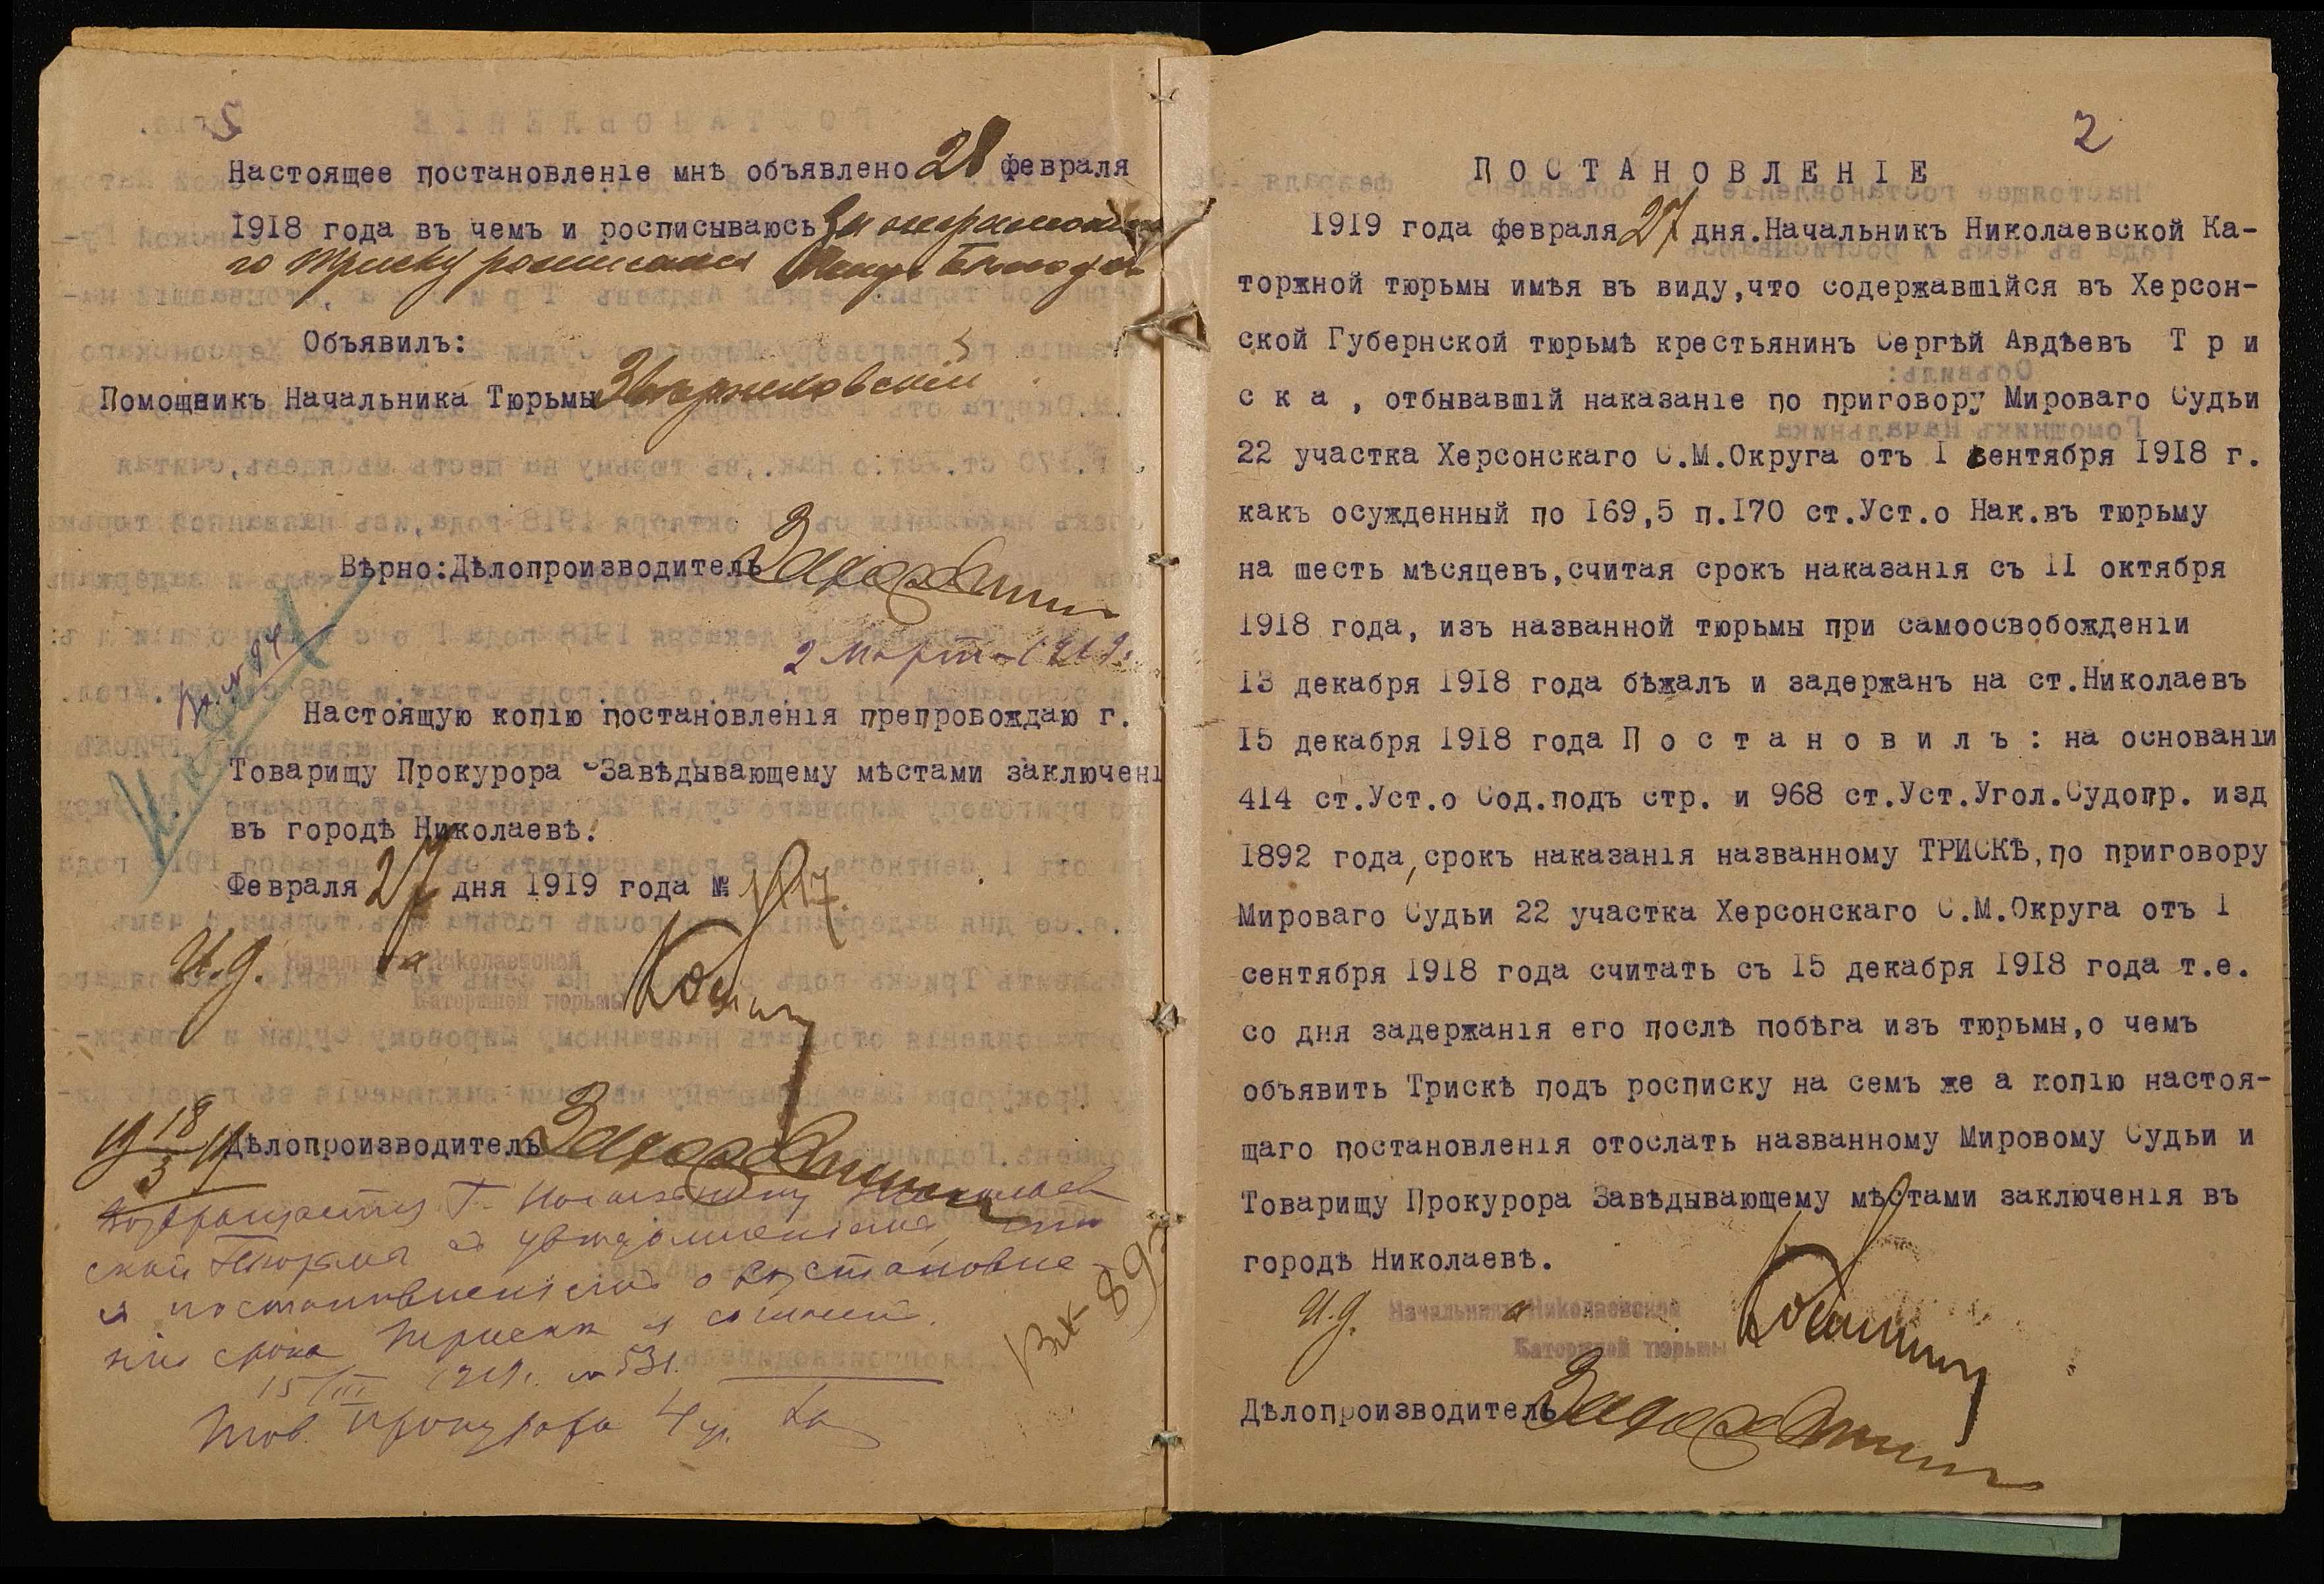 Настоящее постановленіе мнѣ объявлено 28 февраля
1918 года въ чемъ и росписываюсь За неграмотна
го Триску росписался
Объявилъ:
Помощникъ Начальника Тюрьмы
Вѣрно: Дѣлопроизводитель
2 Март 1919.
Настоящую копію постановленія препровождаю г.
Товарищу Прокурора Завѣдывающему мѣстами заключені
въ городѣ Николаевѣ.
Февраля 27 дня 1919 года №
И.д. Начальника Николаевской
Каторжной тюрьмы
19 18/3 19
Дѣлопроизводитель
Возвращается Г. Начальнику Николаев
ской Тюрьмы съ увѣдомленіемъ, что
съ постановленіемъ о возстановле-
ніи срока Триска я согласен.
15/III 1919г. № 531.
Тов. прокурора 4 уч.
Вх 89
2
ПОСТАНОВЛЕНІЕ
1919 года февраля 27 дня. Начальникъ Николаевской Ка-
торжной тюрьмы имѣя въ виду, что содержавшійся въ Херсон-
ской Губернской тюрьмѣ крестьянинъ Сергѣй Авдѣевъ Т р и
с к а , отбывавшій наказаніе по приговору Мироваго Судьи
22 участка Херсонскаго С.М.Округа отъ I сентября 1918 г.
какъ осужденный по 169,5 п.170 ст.Уст.о Нак.въ тюрьму
на шесть мѣсяцевъ, считая срокъ наказанія съ II октября
1918 года, изъ названной тюрьмы при самоосвобожденіи
13 декабря 1918 года бѣжалъ и задержанъ на ст.Николаевъ
15 декабря 1918 года П о с т а н о в и л ъ : на основаніи
414 ст.Уст.о Сод.подъ стр. и 968 ст.Уст.Угол.Судопр. изд
1892 года, срокъ наказанія названному ТРИСКѢ, по приговору
Мироваго Судьи 22 участка Херсонскаго С.М.Округа отъ I
сентября 1918 года считать съ 15 декабря 1918 года т.е.
со дня задержанія его послѣ побѣга изъ тюрьмы, о чемъ
объявить Трискѣ подъ росписку на семъ же а копію настоя-
щаго постановленія отослать названному Мировому Судьи и
Товарищу Прокурора Завѣдывающему мѣстами заключенія въ
городѣ Николаевѣ.
И.д. Начальника Николаевской
Каторжной тюрьмы
Дѣлопроизводитель